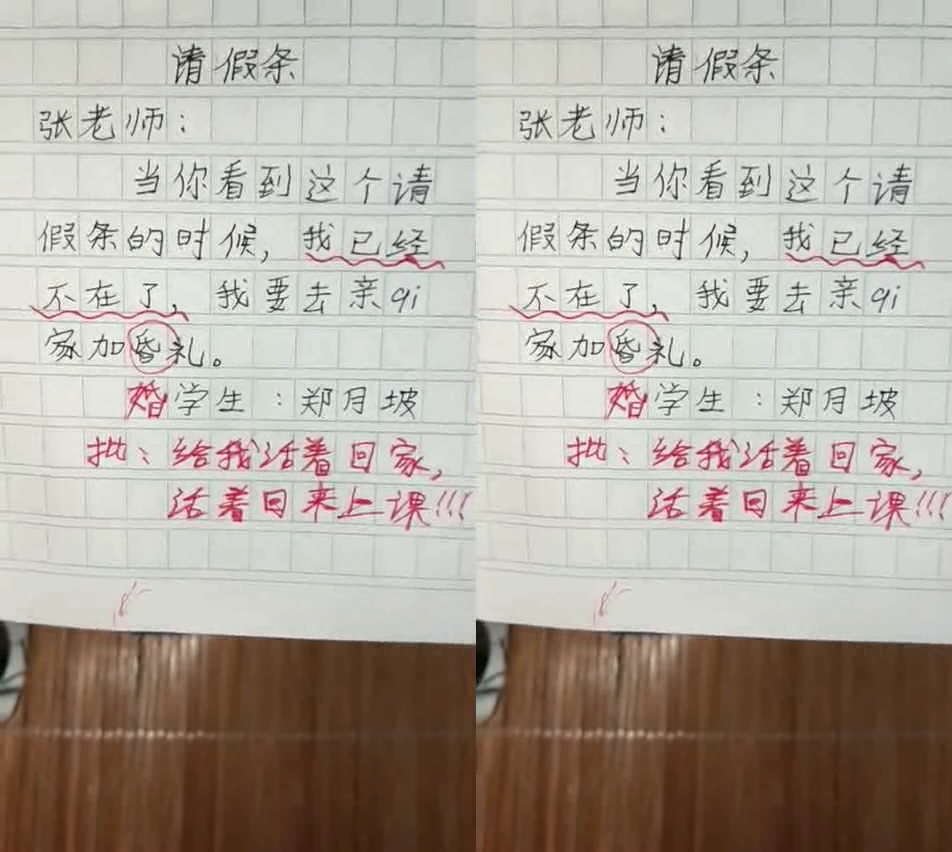 请假条
张老师：
当你看到这个请
假条的时候，我已经
不在了，我要去亲qi
家加昏礼。
婚学生：郑月坡
批：给我活着回家，
活着回来上课!!!
请假条
张老师：
当你看到这个请
假条的时候，我已经
不在了，我要去亲qi
家加昏礼。
婚学生：郑月坡
批：给我活着回家，
活着回来上课!!!